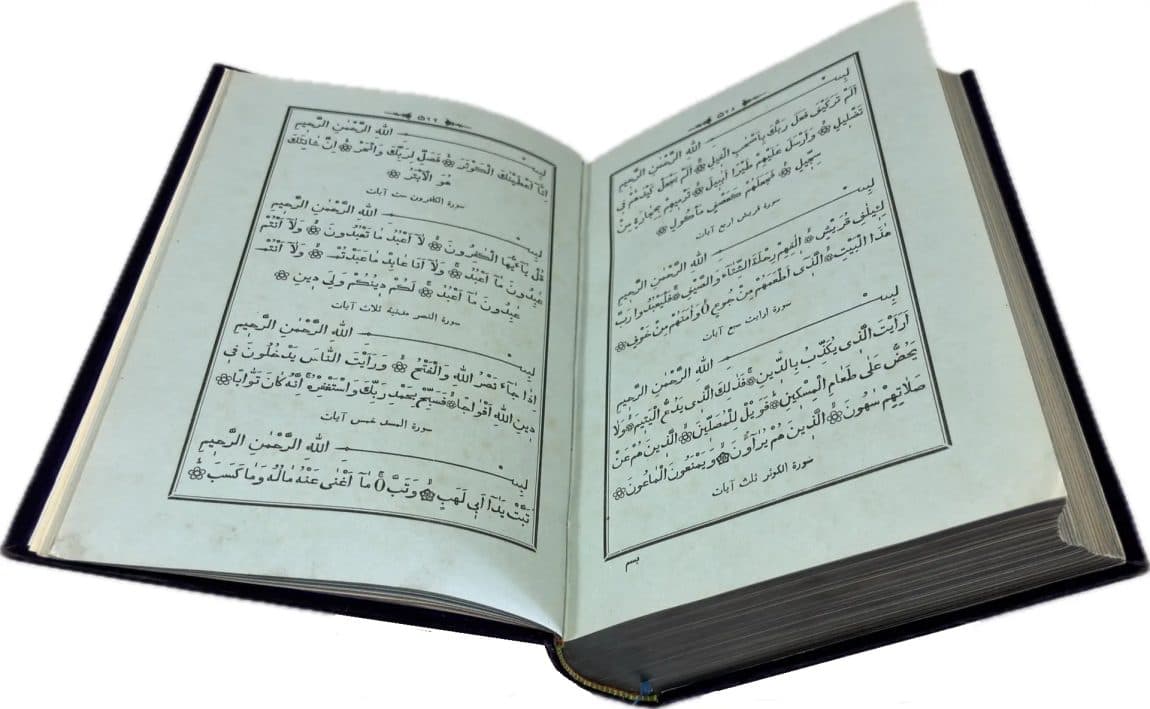 ٥٢٨
بِسْمِ اللهِ الرَّحْمٰنِ الرَّحِيمِ
اَلَمْ تَرَ كَيْفَ فَعَلَ رَبُّكَ بِاَصْحَابِ الْفِيلِ ۞ اَلَمْ يَجْعَلْ كَيْدَهُمْ فِي
تَضْلِيلٍ ۞ وَاَرْسَلَ عَلَيْهِمْ طَيْرًا اَبَابِيلَ ۞ تَرْمِيهِمْ بِحِجَارَةٍ مِنْ
سِجِّيلٍ ۞ فَجَعَلَهُمْ كَعَصْفٍ مَأْكُولٍ ۞
سورة قريش اربع آيات
بِسْمِ اللهِ الرَّحْمٰنِ الرَّحِيمِ
لِاِيلٰفِ قُرَيْشٍ ۞ اٖلٰفِهِمْ رِحْلَةَ الشِّتَاءِ وَالصَّيْفِ ۞ فَلْيَعْبُدُوا رَبَّ
هٰذَا الْبَيْتِ ۞ الَّذِي اَطْعَمَهُمْ مِنْ جُوعٍ ۞ وَاٰمَنَهُمْ مِنْ خَوْفٍ ۞
سورة ارايت سبع آيات
بِسْمِ اللهِ الرَّحْمٰنِ الرَّحِيمِ
اَرَاَيْتَ الَّذِي يُكَذِّبُ بِالدِّينِ ۞ فَذٰلِكَ الَّذِي يَدُعُّ الْيَتِيمَ ۞ وَلَا
يَحُضُّ عَلٰى طَعَامِ الْمِسْكِينِ ۞ فَوَيْلٌ لِلْمُصَلِّينَ ۞ الَّذِينَ هُمْ عَنْ
صَلَاتِهِمْ سَاهُونَ ۞ الَّذِينَ هُمْ يُرَاؤُنَ ۞ وَيَمْنَعُونَ الْمَاعُونَ ۞
سورة الكوثر ثلث آيات
بسم
بِسْمِ اللهِ الرَّحْمٰنِ الرَّحِيمِ
اِنَّا اَعْطَيْنٰكَ الْكَوْثَرَ ۞ فَصَلِّ لِرَبِّكَ وَانْحَرْ ۞ اِنَّ شَانِئَكَ
هُوَ الْاَبْتَرُ ۞
سورة الكافرون ست آيات
بِسْمِ اللهِ الرَّحْمٰنِ الرَّحِيمِ
قُلْ يٰٓاَيُّهَا الْكٰفِرُونَ ۞ لَٓا اَعْبُدُ مَا تَعْبُدُونَ ۞ وَلَٓا اَنْتُمْ
عٰبِدُونَ مَٓا اَعْبُدُ ۞ وَلَٓا اَنَا عَابِدٌ مَا عَبَدْتُمْ ۞ وَلَٓا اَنْتُمْ
عٰبِدُونَ مَٓا اَعْبُدُ ۞ لَكُمْ دِينُكُمْ وَلِيَ دِينِ ۞
سورة النصر مدنية ثلاث آيات
بِسْمِ اللهِ الرَّحْمٰنِ الرَّحِيمِ
اِذَا جَٓاءَ نَصْرُ اللهِ وَالْفَتْحُ ۞ وَرَاَيْتَ النَّاسَ يَدْخُلُونَ فِي
دِينِ اللهِ اَفْوَاجًا ۞ فَسَبِّحْ بِحَمْدِ رَبِّكَ وَاسْتَغْفِرْهُ اِنَّهُ كَانَ تَوَّابًا ۞
سورة المسد خمس آيات
بِسْمِ اللهِ الرَّحْمٰنِ الرَّحِيمِ
تَبَّتْ يَدَٓا اَبِي لَهَبٍ ۞ وَتَبَّ ۞ مَٓا اَغْنٰى عَنْهُ مَالُهُ وَمَا كَسَبَ ۞